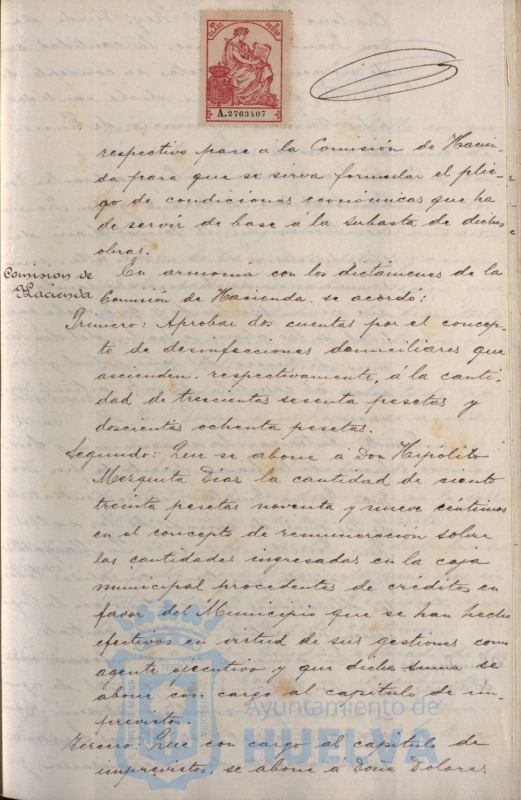 2ª CLASE
PESO
A.2763407
respectivo pase á la Comisión de Hacien-
da para que se sirva formular el plie-
go de condiciones económicas que ha
de servir de base á la subasta de dichas
obras.
Comision de
Hacienda
En armonía con los dictámenes de la
Comisión de Hacienda se acordó:
Primero: Aprobar dos cuentas por el concep-
to de desinfecciones domiciliares que
ascienden, respectivamente, á la canti-
dad de trescientas sesenta pesetas y
doscientas ochenta pesetas.
Segundo: Que se abone á Don Hipólito
Mezquita Diaz la cantidad de ciento
treinta pesetas noventa y nueve céntimos
en el concepto de remuneración sobre
las cantidades ingresadas en la caja
municipal procedentes de créditos en
favor del Municipio que se han hecho
efectivos en virtud de sus gestiones como
agente ejecutivo y que dicha suma se
abone con cargo al capitulo de im-
previstos.
Tercero: Que con cargo al capitulo de
imprevistos, se abone á Doña Dolores
Ayuntamiento de
HUELVA